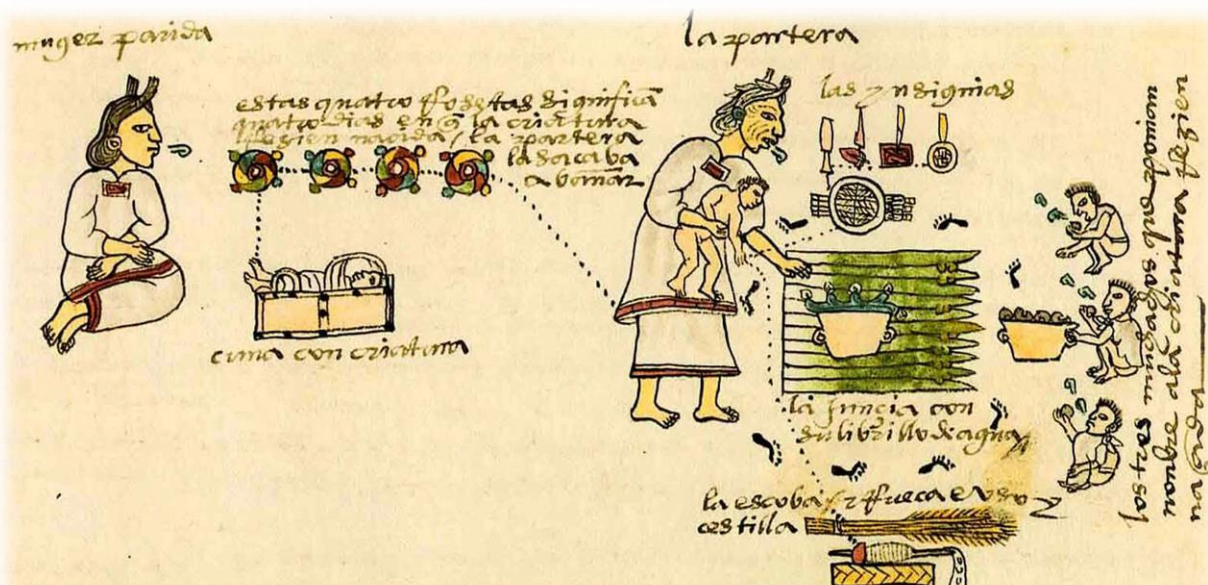 muger parida
estas quatro Rosetas significā
quatro dias en q̃ la criatura
Rezien naçida / la partera
la sacaba
a bañar
cuna con criatura
la partera
las ynsignias
la juncia con
su librillo de agua
la escoba / y Rueca e uso y
cestilla
los tres muchachos que
criatura rezien